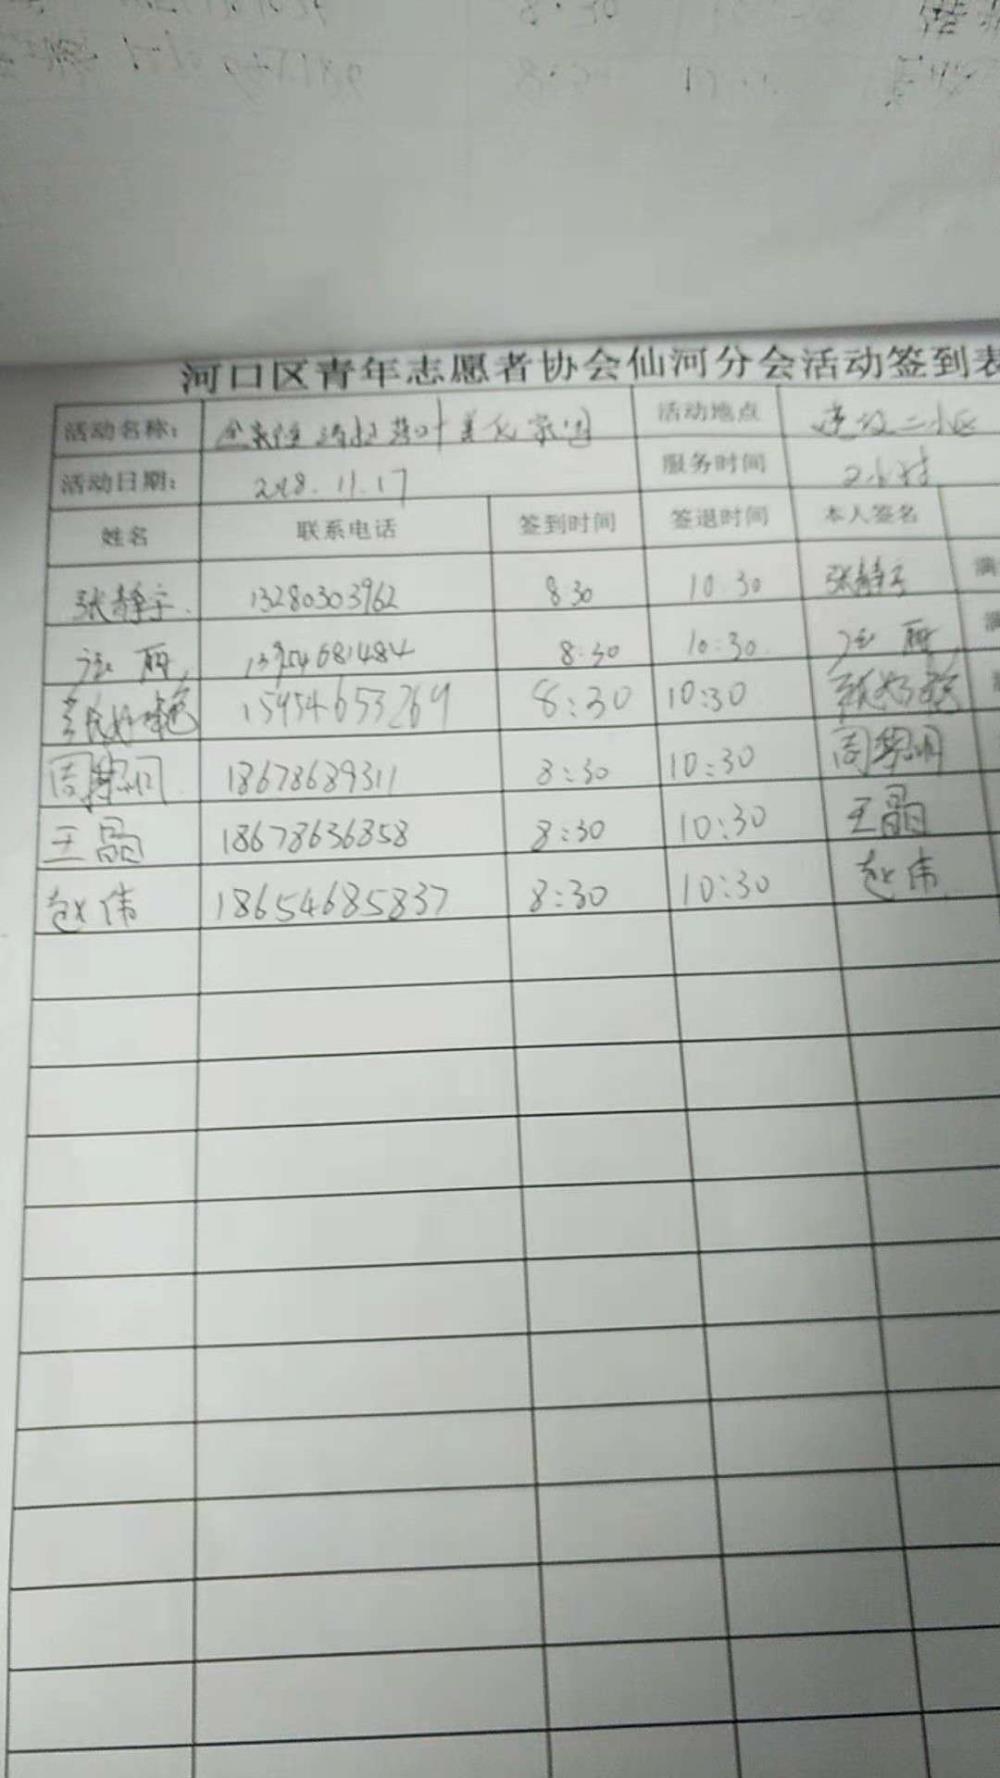 河口区青年志愿者协会仙河分会活动签到表
活动名称： 落叶 美化家园 活动地点 建设二小区
活动日期： 2018.11.17 服务时间 2小时
姓名 联系电话 签到时间 签退时间 本人签名
张静宇 13280303962 8:30 10:30 张静宇 满
汪丽 13954681484 8:30 10:30 汪丽 满
15954653269 8:30 10:30
周黎明 18678689311 8:30 10:30 周黎明
王晶 18678636858 8:30 10:30 王晶
赵伟 18654685837 8:30 10:30 赵伟